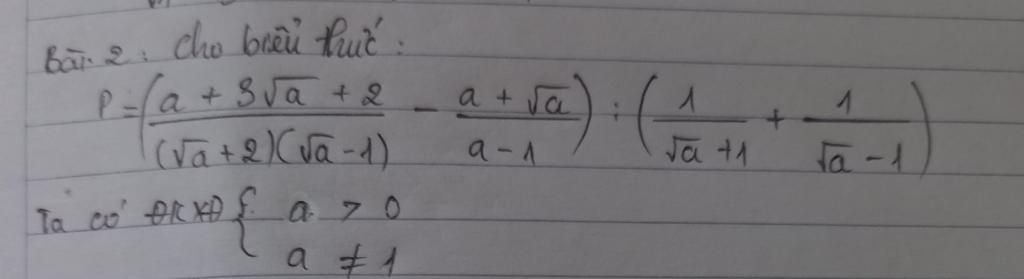 Bài 2: Cho biểu thức:
P = ( (a + 3√a + 2) / ((√a + 2)(√a - 1)) - (a + √a) / (a - 1) ) : ( 1 / (√a + 1) + 1 / (√a - 1) )
Ta có ĐKXĐ { a > 0
a ≠ 1